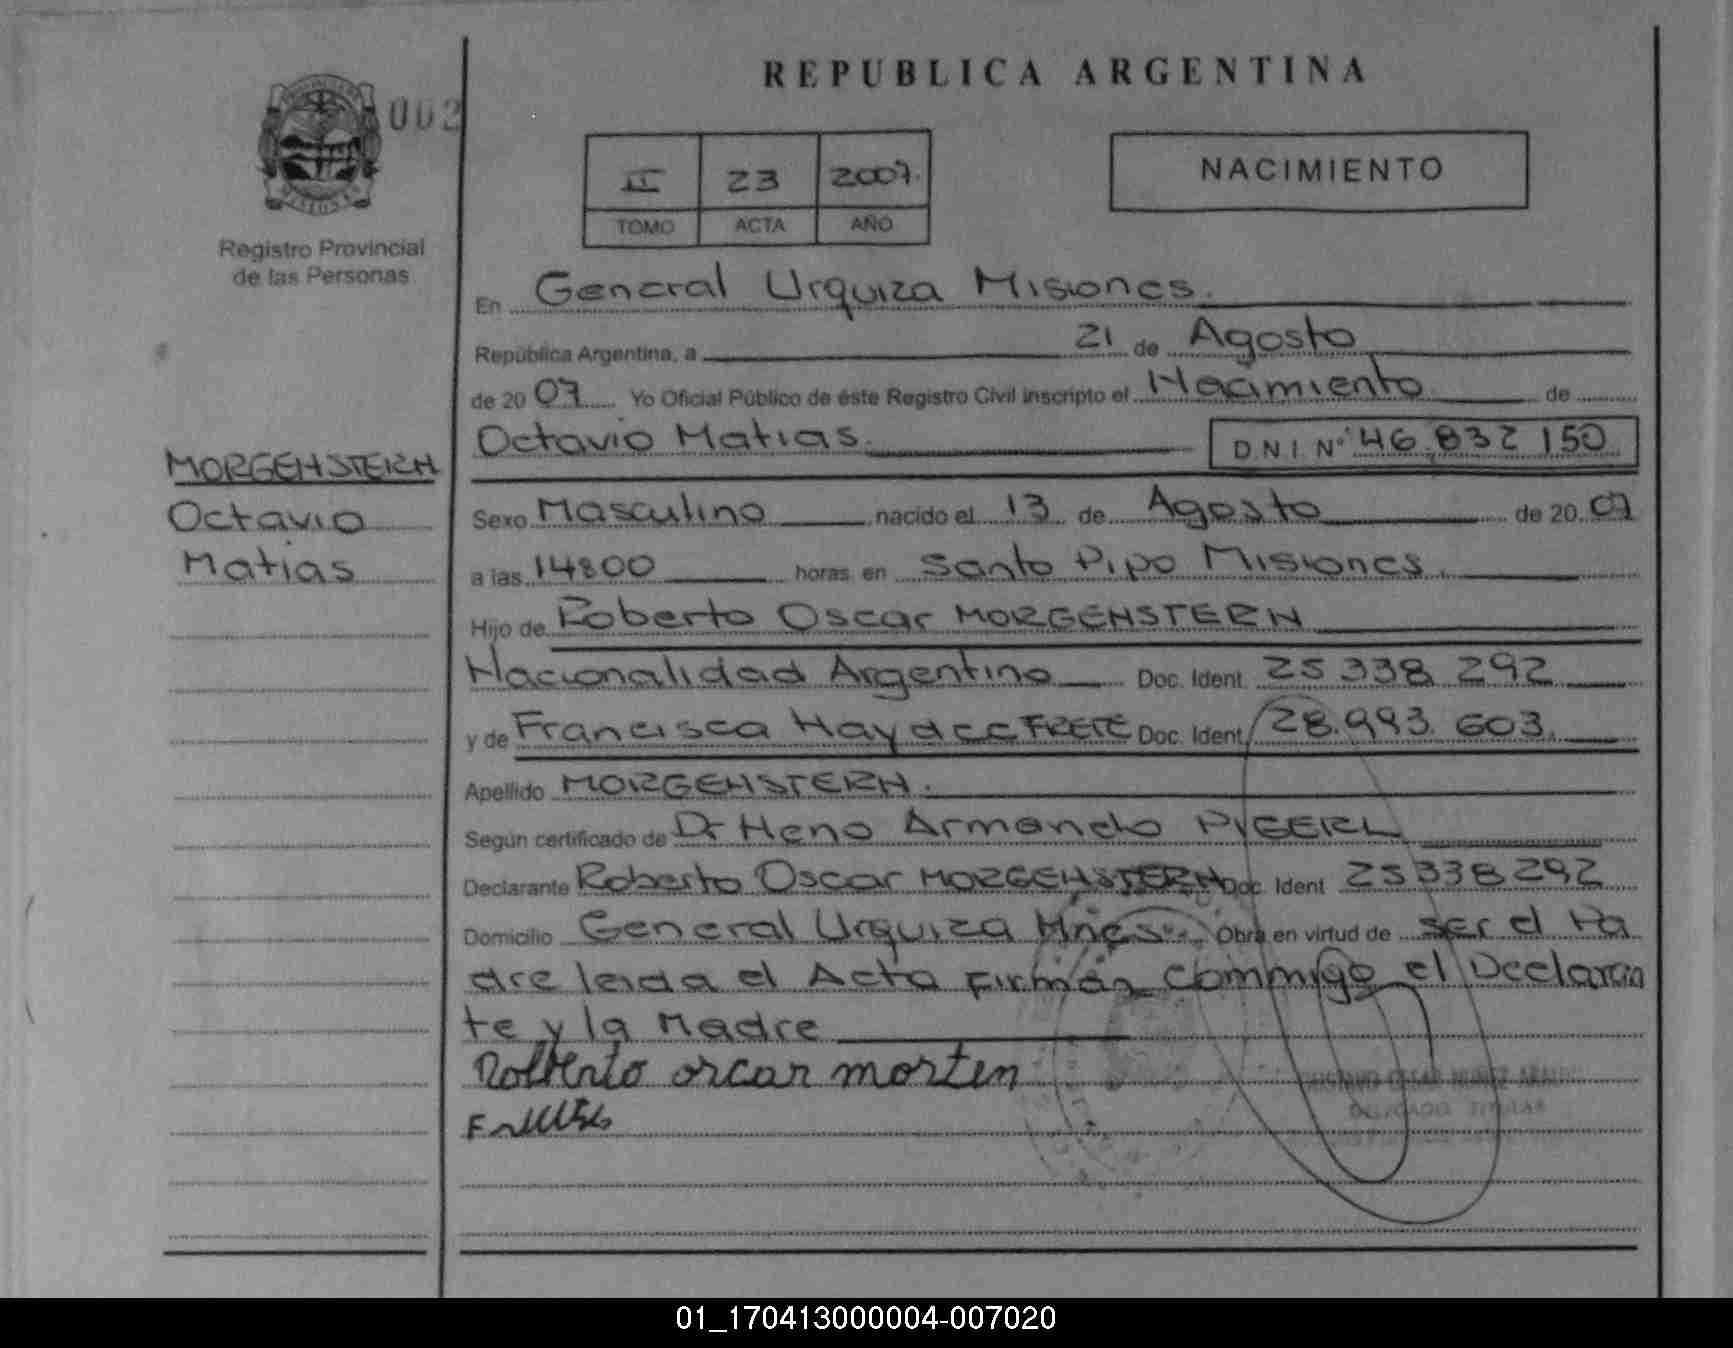 REPUBLICA ARGENTINA
002
II 23 2007.
TOMO ACTA AÑO
NACIMIENTO
Registro Provincial
de las Personas
En General Urquiza Misiones.
República Argentina, a 21 de Agosto
de 20 07 Yo Oficial Público de éste Registro Civil inscripto el Nacimiento de
Octavio Matias. D.N.I. Nº 46.832 150
MORGENSTERN
Octavio
Matias
Sexo Masculino nacido el 13 de Agosto de 20 07
a las 14:00 horas en Santo Pipo Misiones.
Hijo de Roberto Oscar MORGENSTERN
Nacionalidad Argentino Doc. Ident. 25 338 292
y de Francisca Haydee FRETE Doc. Ident. 28.993.603.
Apellido MORGENSTERN.
Según certificado de Dr Heno Armando PIGERL
Declarante Roberto Oscar MORGENSTERN Doc. Ident 25338292
Domicilio General Urquiza Mnes. Obra en virtud de ser el Pa
dre leida el Acta Firman Commigo el Declaran
te y la Madre
Rolberto orcar morten
DELEGADO TITULAR
01_170413000004-007020